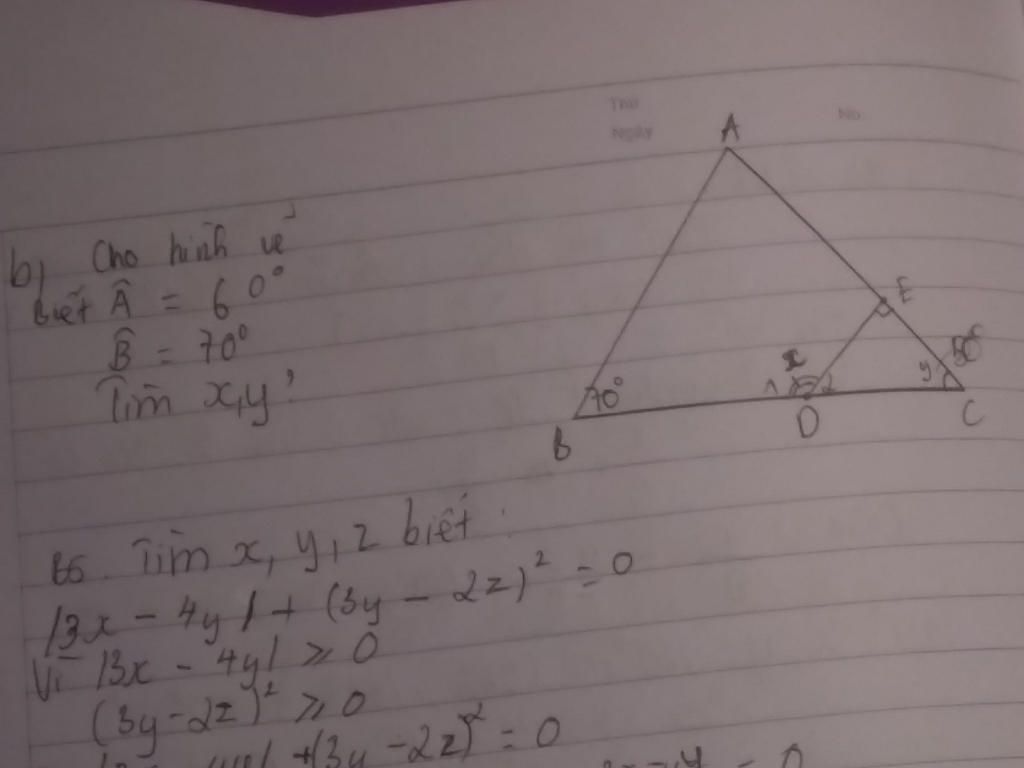 Thứ
Ngày
No.
A
b) Cho hình vẽ
biết Â = 60°
B̂ = 70°
Tìm x, y?
E
x
1
2
y
70°
B
D
C
B5. Tìm x, y, z biết:
|3x - 4y| + (3y - 2z)² = 0
Vì |3x - 4y| ≥ 0
(3y - 2z)² ≥ 0
+ (3y - 2z)² = 0
= 0